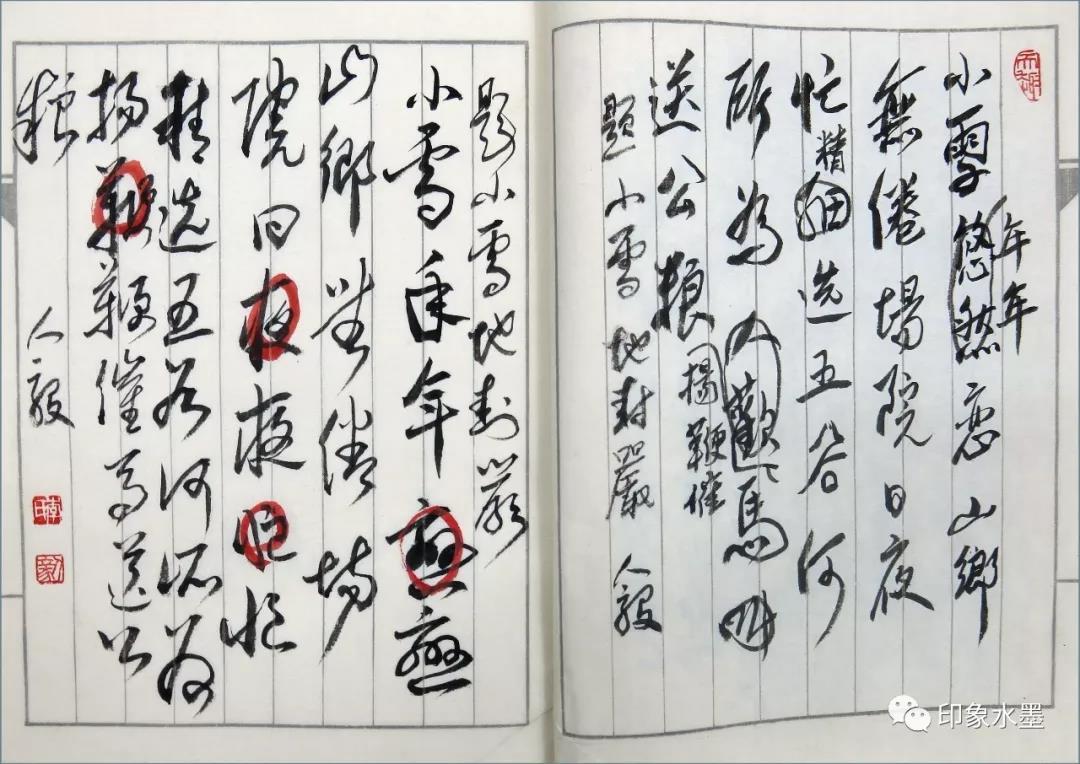 年年
小雪悠然恋山鄉
無倦場院日夜
忙精細选五谷何
所為人歡馬叫
揚鞭催
送公粮
題小雪地封嚴 人毅
題小雪地封嚴
小雪年年恋恋
山鄉無倦場
院日夜夜忙忙
精选五谷何所为
揚鞭鞭催马送公
粮
人毅
印象水墨